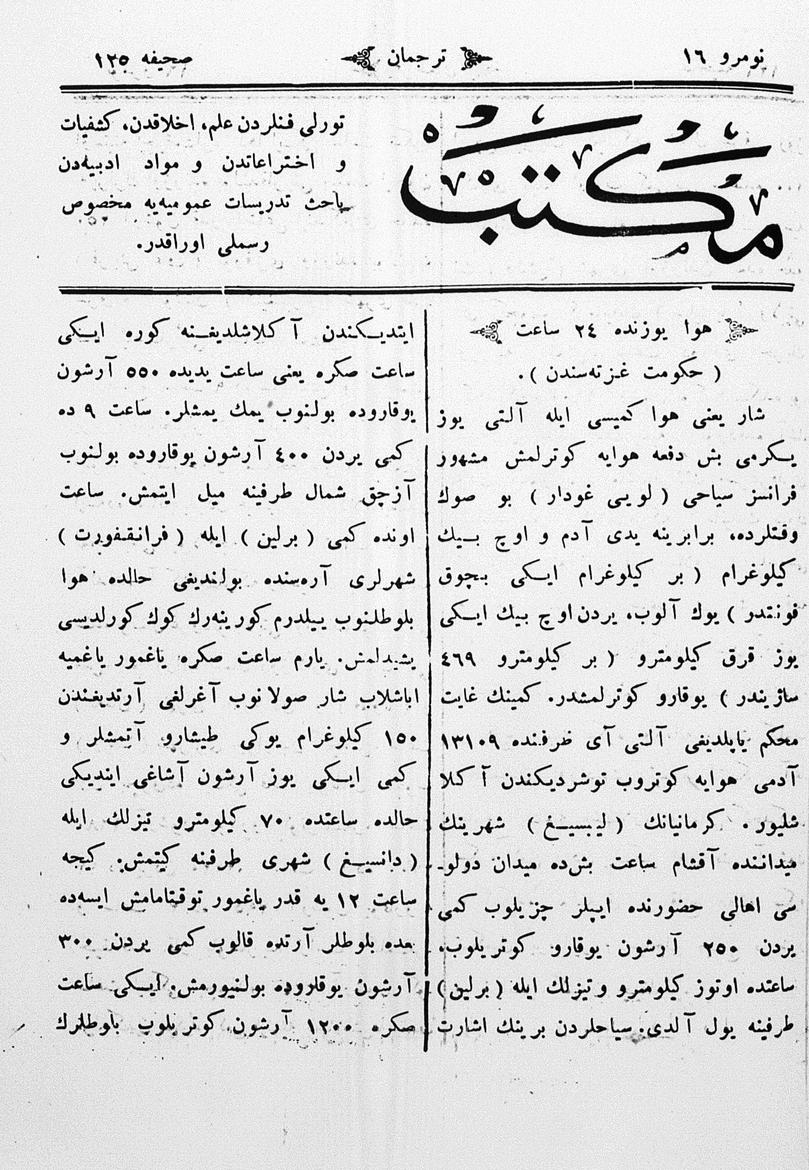 نومرو ١٦ ترجمان صحیفه ١٢٥
مكتب
تورلی فنلردن علم، اخلاقدن، كشفیات
و اختراعاتدن و مواد ادبیه‌دن
باحث تدریسات عمومیه‌یه مخصوص
رسملی اوراقدر.
هوا یوزنده ٢٤ ساعت
( حكومت غزته‌سندن ).
شار یعنی هوا كمیسی ایله آلتی یوز
یكرمی بش دفعه هوایه كوترلمش مشهور
فرانسز سیاحی ( لویی غودار ) بو صوك
وقتلرده، برابرینه یدی آدم و اوچ بیك
كیلوغرام ( بر كیلوغرام ایكی بچوق
فونتدر ) یوك آلوب، یردن اوچ بیك ایكی
یوز قرق كیلومترو ( بر كیلومترو ٤٦٩
ساژیندر ) یوقارو كوترلمشدر. كمینك غایت
محكم یاپلدیغی آلتی آی ظرفنده ١٣١٠٩
آدمی هوایه كوتروب توشردیكندن آكلا
شلیور. كرمانیانك ( لیبسیغ ) شهرینك
میداننده آقشام ساعت بش‌ده میدان دولو۔
سی اهالی حضورنده ایپلر چزیلوب كمی
یردن ٢٥٠ آرشون یوقارو كوتریلوب،
ساعتده اوتوز كیلومترو و تیزلك ایله ( برلین)
طرفینه یول آلدی. سیاحلردن برینك اشارت
ایتدیكندن آكلاشلدیغنه كوره ایكی
ساعت صكره یعنی ساعت یدیده ٥٥٠ آرشون
یوقاروده بولنوب یمك یمشلر. ساعت ٩ ده
كمی یردن ٤٠٠ آرشون یوقاروده بولنوب
آزچق شمال طرفینه میل ایتمش. ساعت
اونده كمی ( برلین ) ایله ( فرانقفورت )
شهرلری آره‌سنده بولندیغی حالده هوا
بلوطلنوب ییلدرم كورینه‌رك كوك كورلدیسی
یشیدلمش. یارم ساعت صكره یاغمور یاغمیه
اباشلاب شار صولانوب آغرلغی آرتدیغندن
١٥٠ كیلوغرام یوكی طیشارو آتمشلر و
كمی ایكی یوز آرشون آشاغی ایندیكی
حالده ساعتده ٧٠ كیلومترو تیزلك ایله
( دانسیغ ) شهری طرفینه كیتمش. كیجه
ساعت ١٢ یه قدر یاغمور توقتامامش ایسه‌ده
بعده بلوطلر آرتده قالوب كمی یردن ٣٠٠
آرشون یوقاروده بولنیورمش. ایكی ساعت
صكره ١٢٠٠ آرشون كوتریلوب بلوطلرك